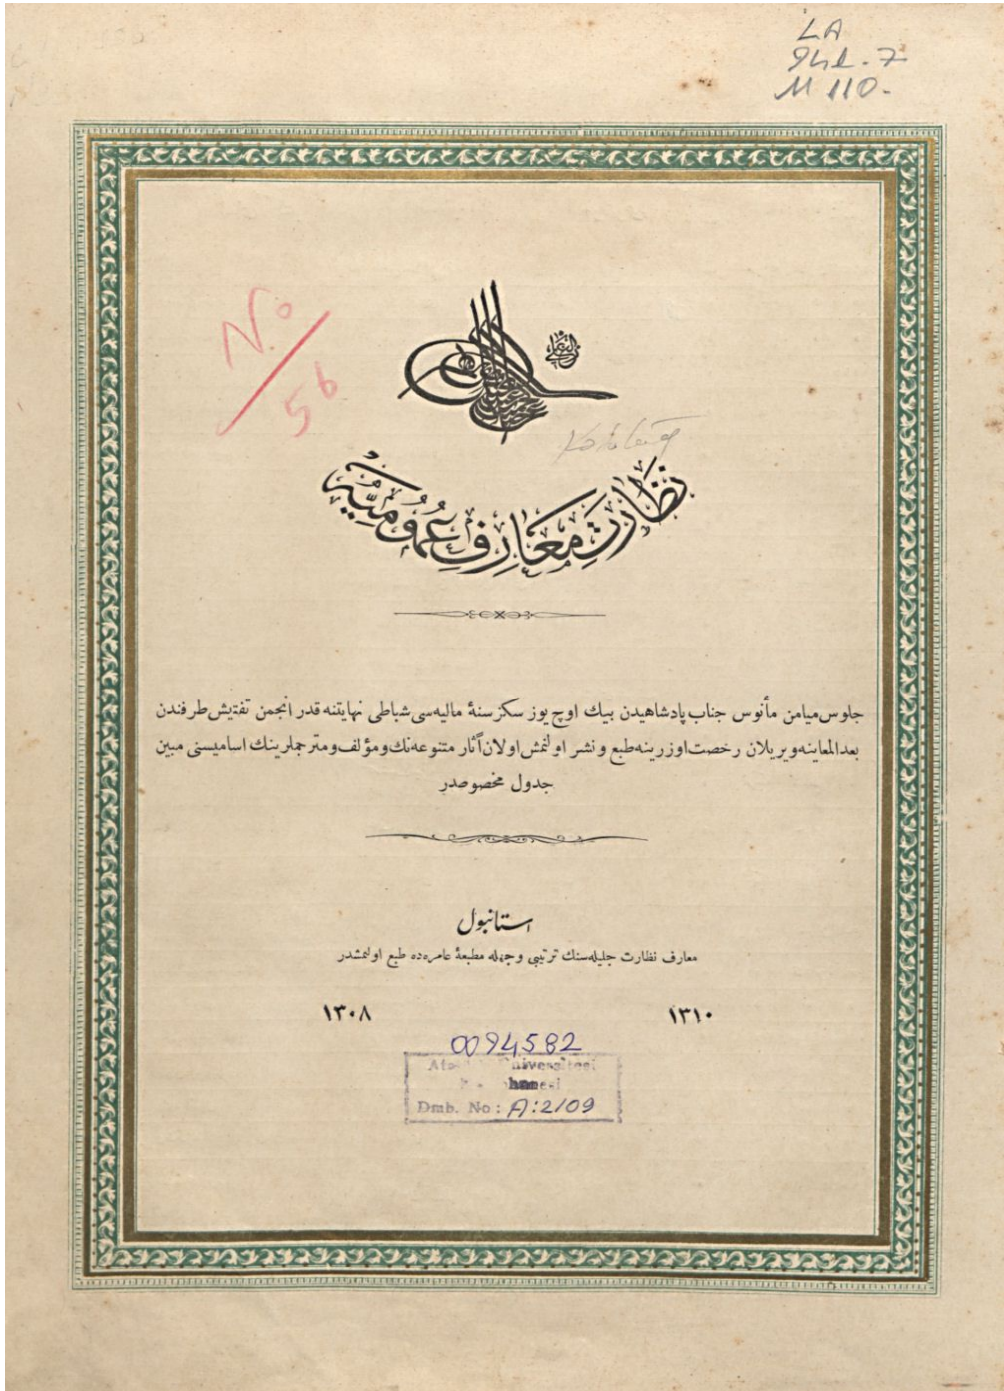 LA
M 110.
No
56
الغازی
نظارت معارف عمومیه
جلوس میامن مأنوس جناب پادشاهیدن بیك اوچ یوز سکز سنۀ مالیه سی شباطی نهایتنه قدر انجمن تفتیش طرفندن
بعدالمعاینه ویریلان رخصت اوزرینه طبع و نشر اولنمش اولان آثار متنوعه نك و مؤلف و مترجملرینك اسامیسنی مبین
جدول مخصوصدر
استانبول
معارف نظارت جلیله سنك ترتیبی وجهله مطبعۀ عامره ده طبع اولنمشدر
١٣١٠ ١٣٠٨
0094582
Üniversitesi
Dmb. No: A:2109